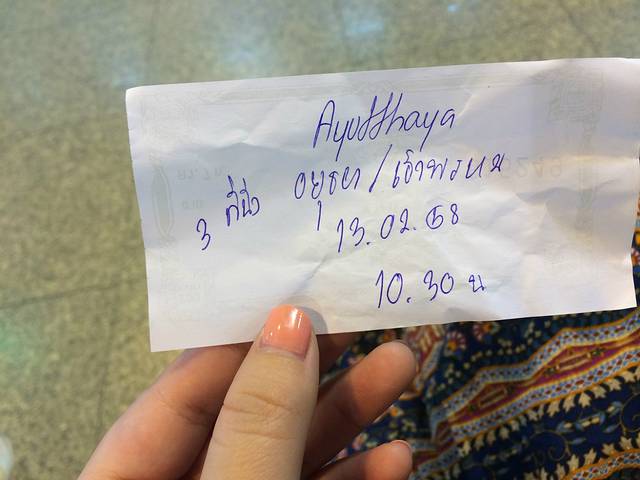 Ayutthaya
3 ที่นั่ง อยุธยา / เจ้าพรหม
13.02.68
10.30 น